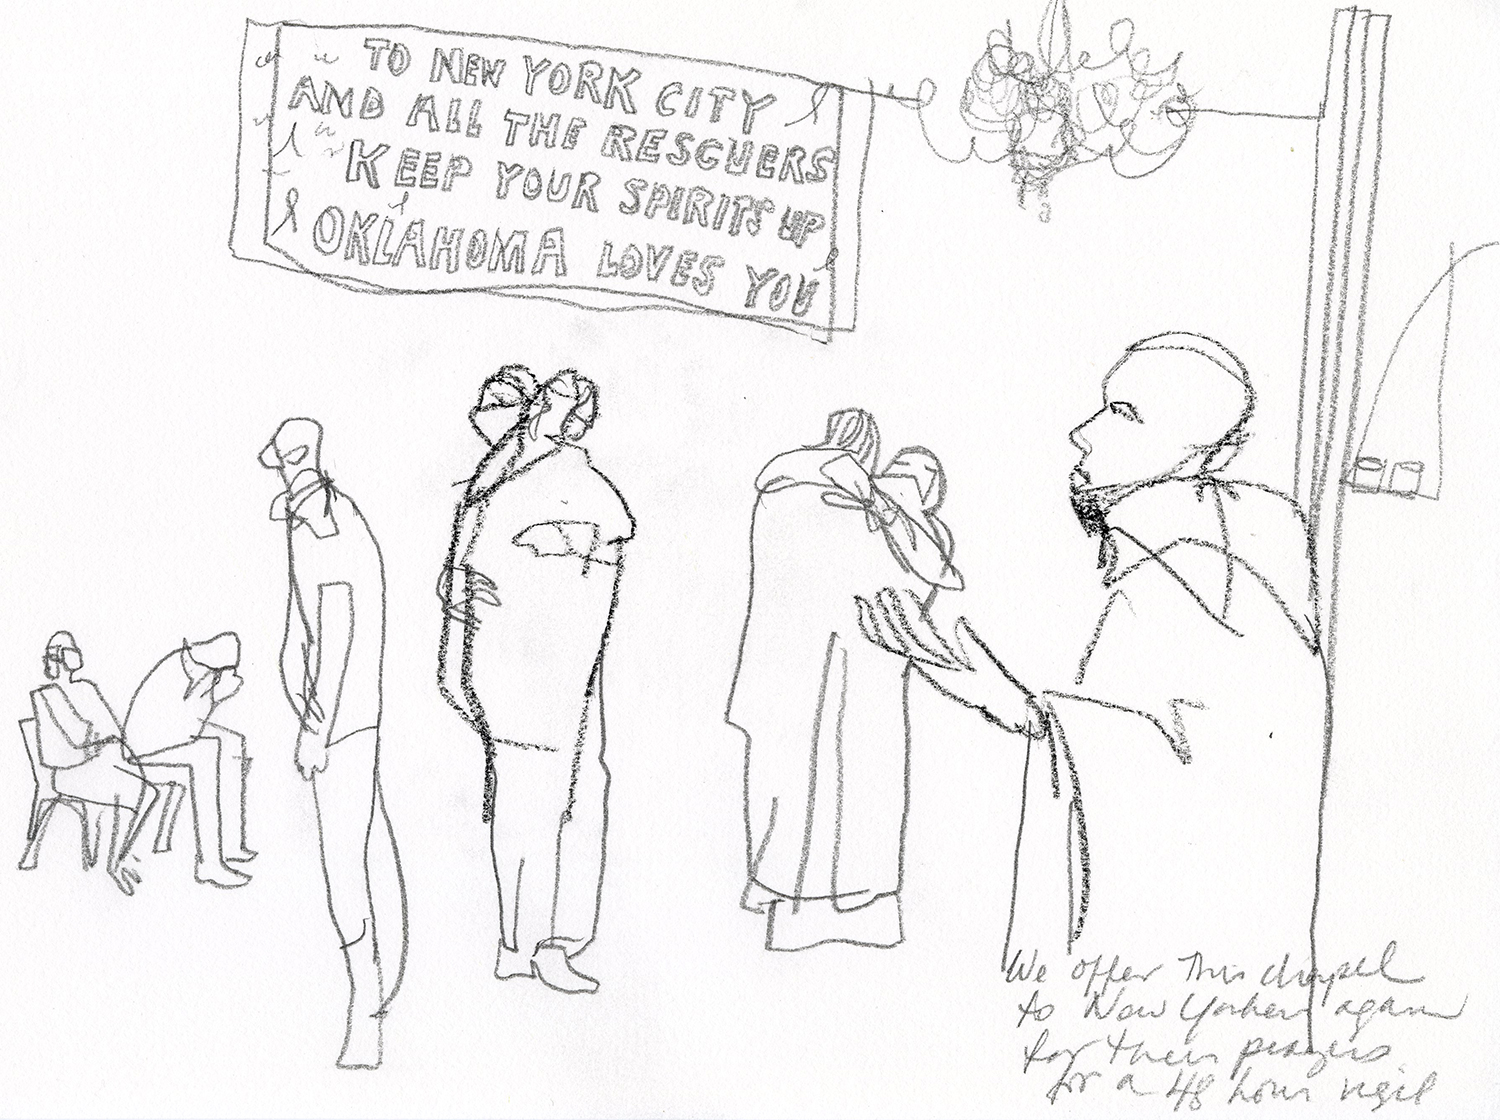 TO NEW YORK CITY
AND ALL THE RESCUERS
KEEP YOUR SPIRITS UP
OKLAHOMA LOVES YOU
We offer this chapel
to New Yorkers again
for their prayers
for a 48 hour vigil